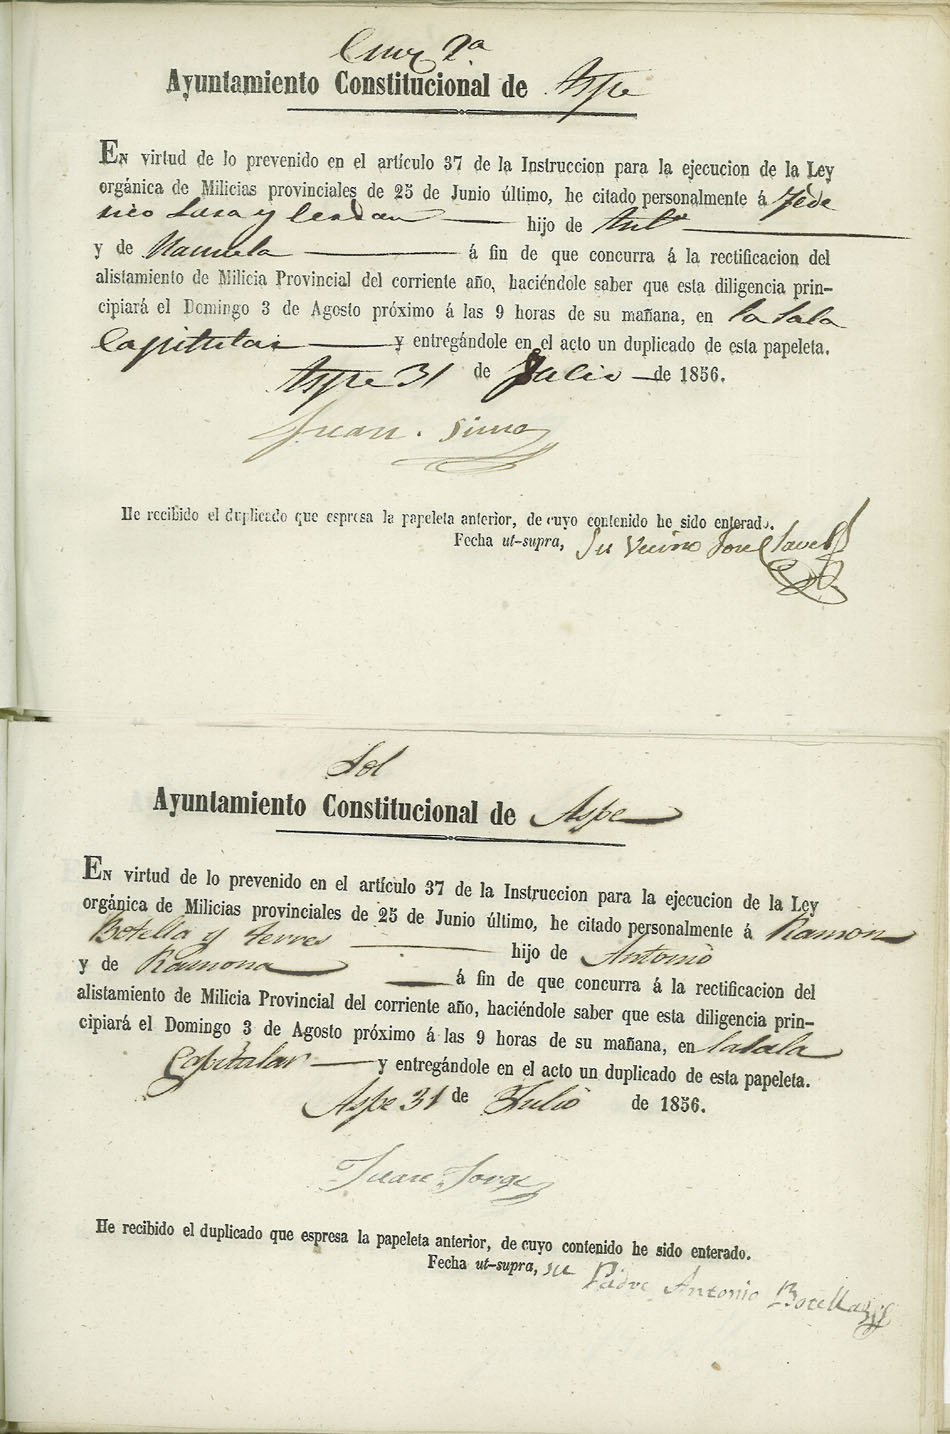 Cruz 2ª
Ayuntamiento Constitucional de Aspe
EN virtud de lo prevenido en el artículo 37 de la Instruccion para la ejecucion de la Ley
orgánica de Milicias provinciales de 25 de Junio último, he citado personalmente á Fede
rico hijo de Antº
y de Manuela á fin de que concurra á la rectificacion del
alistamiento de Milicia Provincial del corriente año, haciéndole saber que esta diligencia prin-
cipiará el Domingo 3 de Agosto próximo á las 9 horas de su mañana, en la Sala
Capitular y entregándole en el acto un duplicado de esta papeleta.
Aspe 31 de Julio de 1856.
Juan
He recibido el duplicado que espresa la papeleta anterior, de cuyo contenido he sido enterado.
Fecha ut-supra, Su Vecino Jose
Sol
Ayuntamiento Constitucional de Aspe
EN virtud de lo prevenido en el artículo 37 de la Instruccion para la ejecucion de la Ley
orgánica de Milicias provinciales de 25 de Junio último, he citado personalmente á Ramon
Botella y Terres hijo de Antonio
y de Ramona á fin de que concurra á la rectificacion del
alistamiento de Milicia Provincial del corriente año, haciéndole saber que esta diligencia prin-
cipiará el Domingo 3 de Agosto próximo á las 9 horas de su mañana, en la Sala
Capitular y entregándole en el acto un duplicado de esta papeleta.
Aspe 31 de Julio de 1856.
Juan Jorge
He recibido el duplicado que espresa la papeleta anterior, de cuyo contenido he sido enterado.
Fecha ut-supra, su Padre Antonio Botella